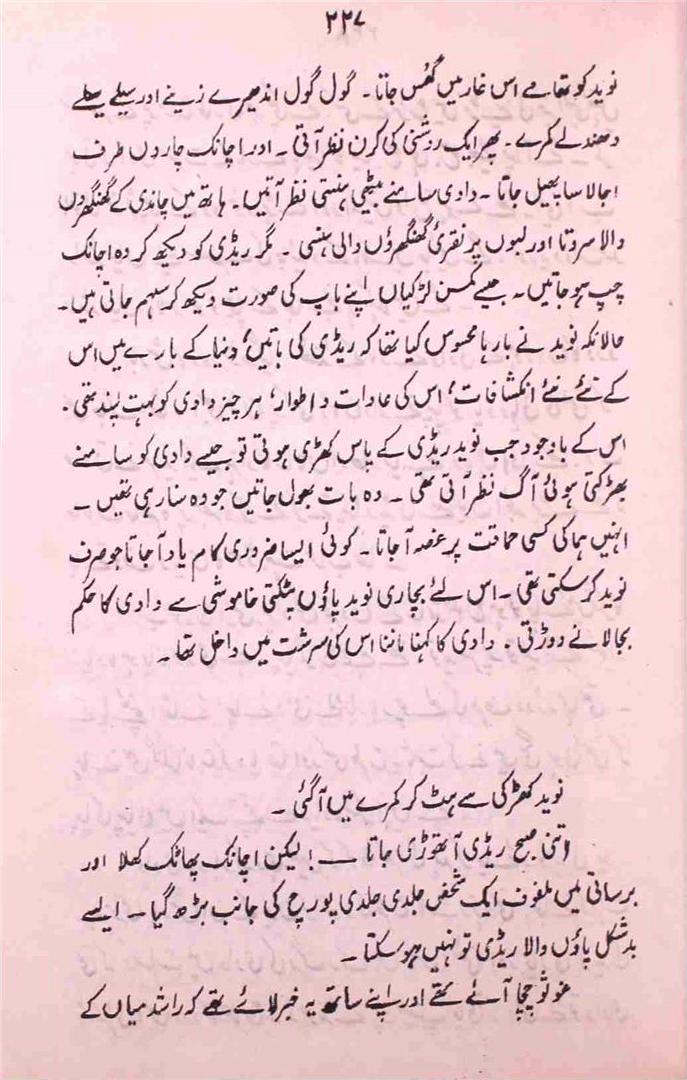 ۲۲۷
نوید کو تھامے اس غار میں گھس جاتا۔ گول گول اندھیرے زینے اور سیلے سیلے
دھندلے کمرے۔ پھر ایک روشنی کی کرن نظر آتی۔ اور اچانک چاروں طرف
اجالا سا پھیل جاتا۔ دادی سامنے بیٹھی ہنستی نظر آتیں۔ ہاتھ میں چاندی کے گھنگھروں
والا سروتا اور لبوں پر نقرئی گھنگھروں والی ہنسی۔ مگر ریڈی کو دیکھ کر وہ اچانک
چپ ہو جاتیں۔ جیسے کمسن لڑکیاں اپنے باپ کی صورت دیکھ کر سہم جاتی ہیں۔
حالانکہ نوید نے بارہا محسوس کیا تھا کہ ریڈی کی باتیں، دنیا کے بارے میں اس
کے نئے نئے انکشافات، اس کی عادات و اطوار، ہر چیز دادی کو بہت پسند تھی۔
اس کے باوجود جب نوید ریڈی کے پاس کھڑی ہوتی تو جیسے دادی کو سامنے
بھڑکتی ہوئی آگ نظر آتی تھی۔ وہ بات بھول جاتیں جو وہ سنا رہی تھیں۔
انہیں ہما کی کسی حماقت پر غصہ آ جاتا۔ کوئی ایسا ضروری کام یاد آ جاتا جو صرف
نوید کر سکتی تھی۔ اس لئے بچاری نوید پاؤں پٹکتی خاموشی سے دادی کا حکم
بجا لانے دوڑتی۔ دادی کا کہنا ماننا اس کی سرشت میں داخل تھا۔
نوید کھڑکی سے ہٹ کر کمرے میں آ گئی۔
اتنی صبح ریڈی آ تھوڑی جاتا ــــ! لیکن اچانک پھاٹک کھلا اور
برساتی میں ملفوف ایک شخص جلدی جلدی پورچ کی جانب بڑھ گیا۔ ایسے
بد شکل پاؤں والا ریڈی تو نہیں ہو سکتا۔
غوثو چچا آئے تھے اور اپنے ساتھ یہ خبر لائے تھے کہ راشد میاں کے